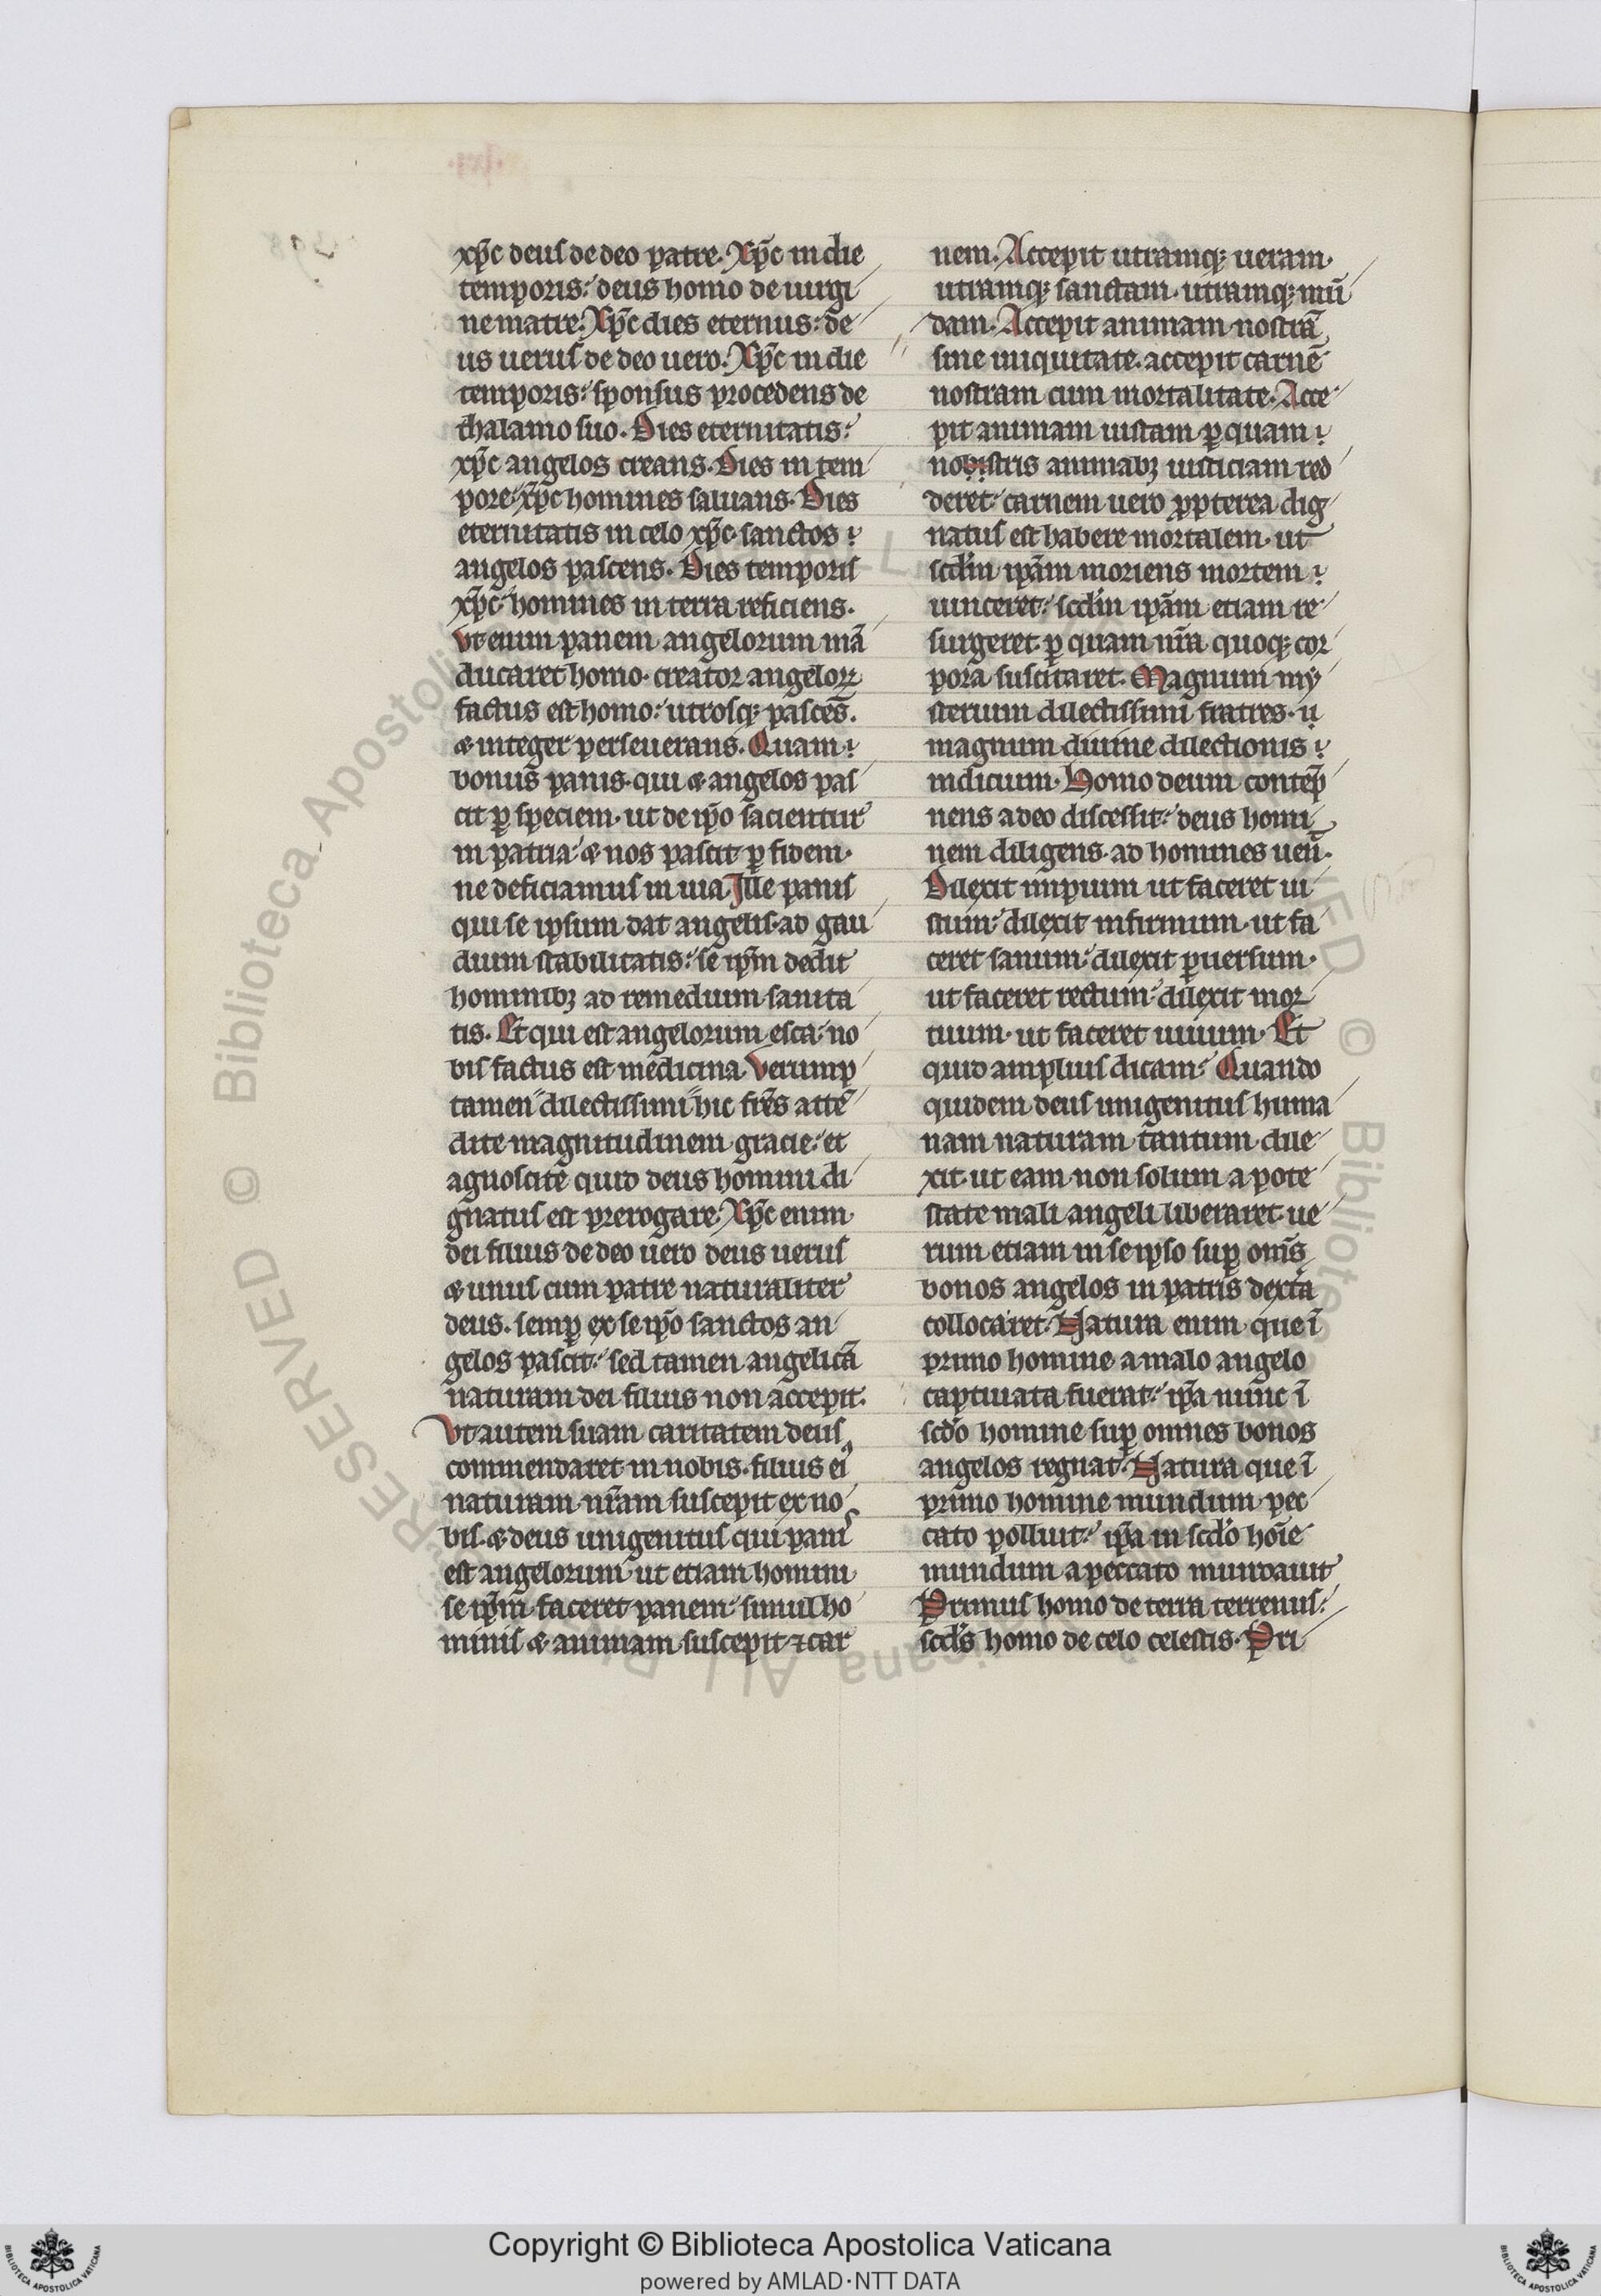 xp̄c deus de deo patre. Xp̄c in die
temporis: deus homo de uirgi
ne matre. Xp̄c dies eternus: de
us uerus de deo uero. Xp̄c in die
temporis: sponsus procedens de
thalamo suo. Dies eternitatis:
xp̄c angelos creans. Dies in tem
pore: xp̄c homines saluans. Dies
eternitatis in celo xp̄c sanctos
angelos pascens. Dies temporis
xp̄c homines in terra reficiens.
Vt enim panem angelorum mā
ducaret homo. creator angeloꝝ
factus est homo: utrosqꝫ pascēs.
⁊ integer perseuerans. Quam
bonus panis. qui ⁊ angelos pas
cit ꝑ speciem. ut de ip̄o sacientur
in patria: ⁊ nos pascit ꝑ fidem.
ne deficiamus in uia. Ille panis
qui se ipsum dat angelis ad gau
dium stabilitatis: se ip̄m dedit
hominibꝫ ad remedium sanita
tis. Et qui est angelorum esca: no
bis factus est medicina. Verump
tamen dilectissimi hic fr̄es attē
dite magnitudinem gracie: et
agnoscite quid deus homini di
gnatus est prerogare. Xp̄c enim
dei filius de deo uero deus uerus
⁊ unus cum patre naturaliter
deus. semꝑ ex se ip̄o sanctos an
gelos pascit: sed tamen angelicā
naturam dei filius non accepit.
Vt autem suam caritatem deus
commendaret in nobis. filius ei
naturam nr̄am suscepit ex no
bis. ⁊ deus unigenitus qui panis
est angelorum ut etiam homini
se ip̄m faceret panem: simul ho
minis ⁊ animam suscepit ⁊ car
nem. Accepit utramqꝫ ueram.
utramqꝫ sanctam. utramqꝫ mū
dam. Accepit animam nostrā
sine iniquitate. accepit carnē
nostram cum mortalitate. Acce
pit animam iustam ꝑ quam
nobistris animabꝫ iusticiam red
deret: carnem uero ꝓpterea dig
natus est habere mortalem. ut
scd̄m ip̄am moriens mortem
uinceret: scd̄m ip̄am etiam re
surgeret. ꝑ quam nr̄a quoqꝫ cor
pora suscitaret. Magnum mẏ
sterium dilectissimi fratres. ⁊
magnum diuine dilectionis
indicium. Homo deum contēp
nens a deo discessit: deus homi
nem diligens. ad homines uen̄.
Dilexit impium ut faceret iu
stum: dilexit infirmum. ut fa
ceret sanum: dilexit ꝑuersum.
ut faceret rectum: dilexit mor
tuum. ut faceret uiuum. Et
quid amplius dicam: Quando
quidem deus unigenitus huma
nam naturam tantum dile
xit. ut eam non solum a pote
state mali angeli liberaret. ue
rum etiam in se ipso suꝑ om̄s
bonos angelos in patris dextra
collocaret. Natura enim que ī
primo homine a malo angelo
captiuata fuerat: ip̄a nunc ī
scd̄o homine suꝑ omnes bonos
angelos regnat. Natura que ī
primo homine mundum pec
cato polluit: ip̄a in scd̄o hoīe
mundum a peccato mundauit
Primus homo de terra terrenus:
scd̄s homo de celo celestis. Pri
Copyright © Biblioteca Apostolica Vaticana
powered by AMLAD·NTT DATA